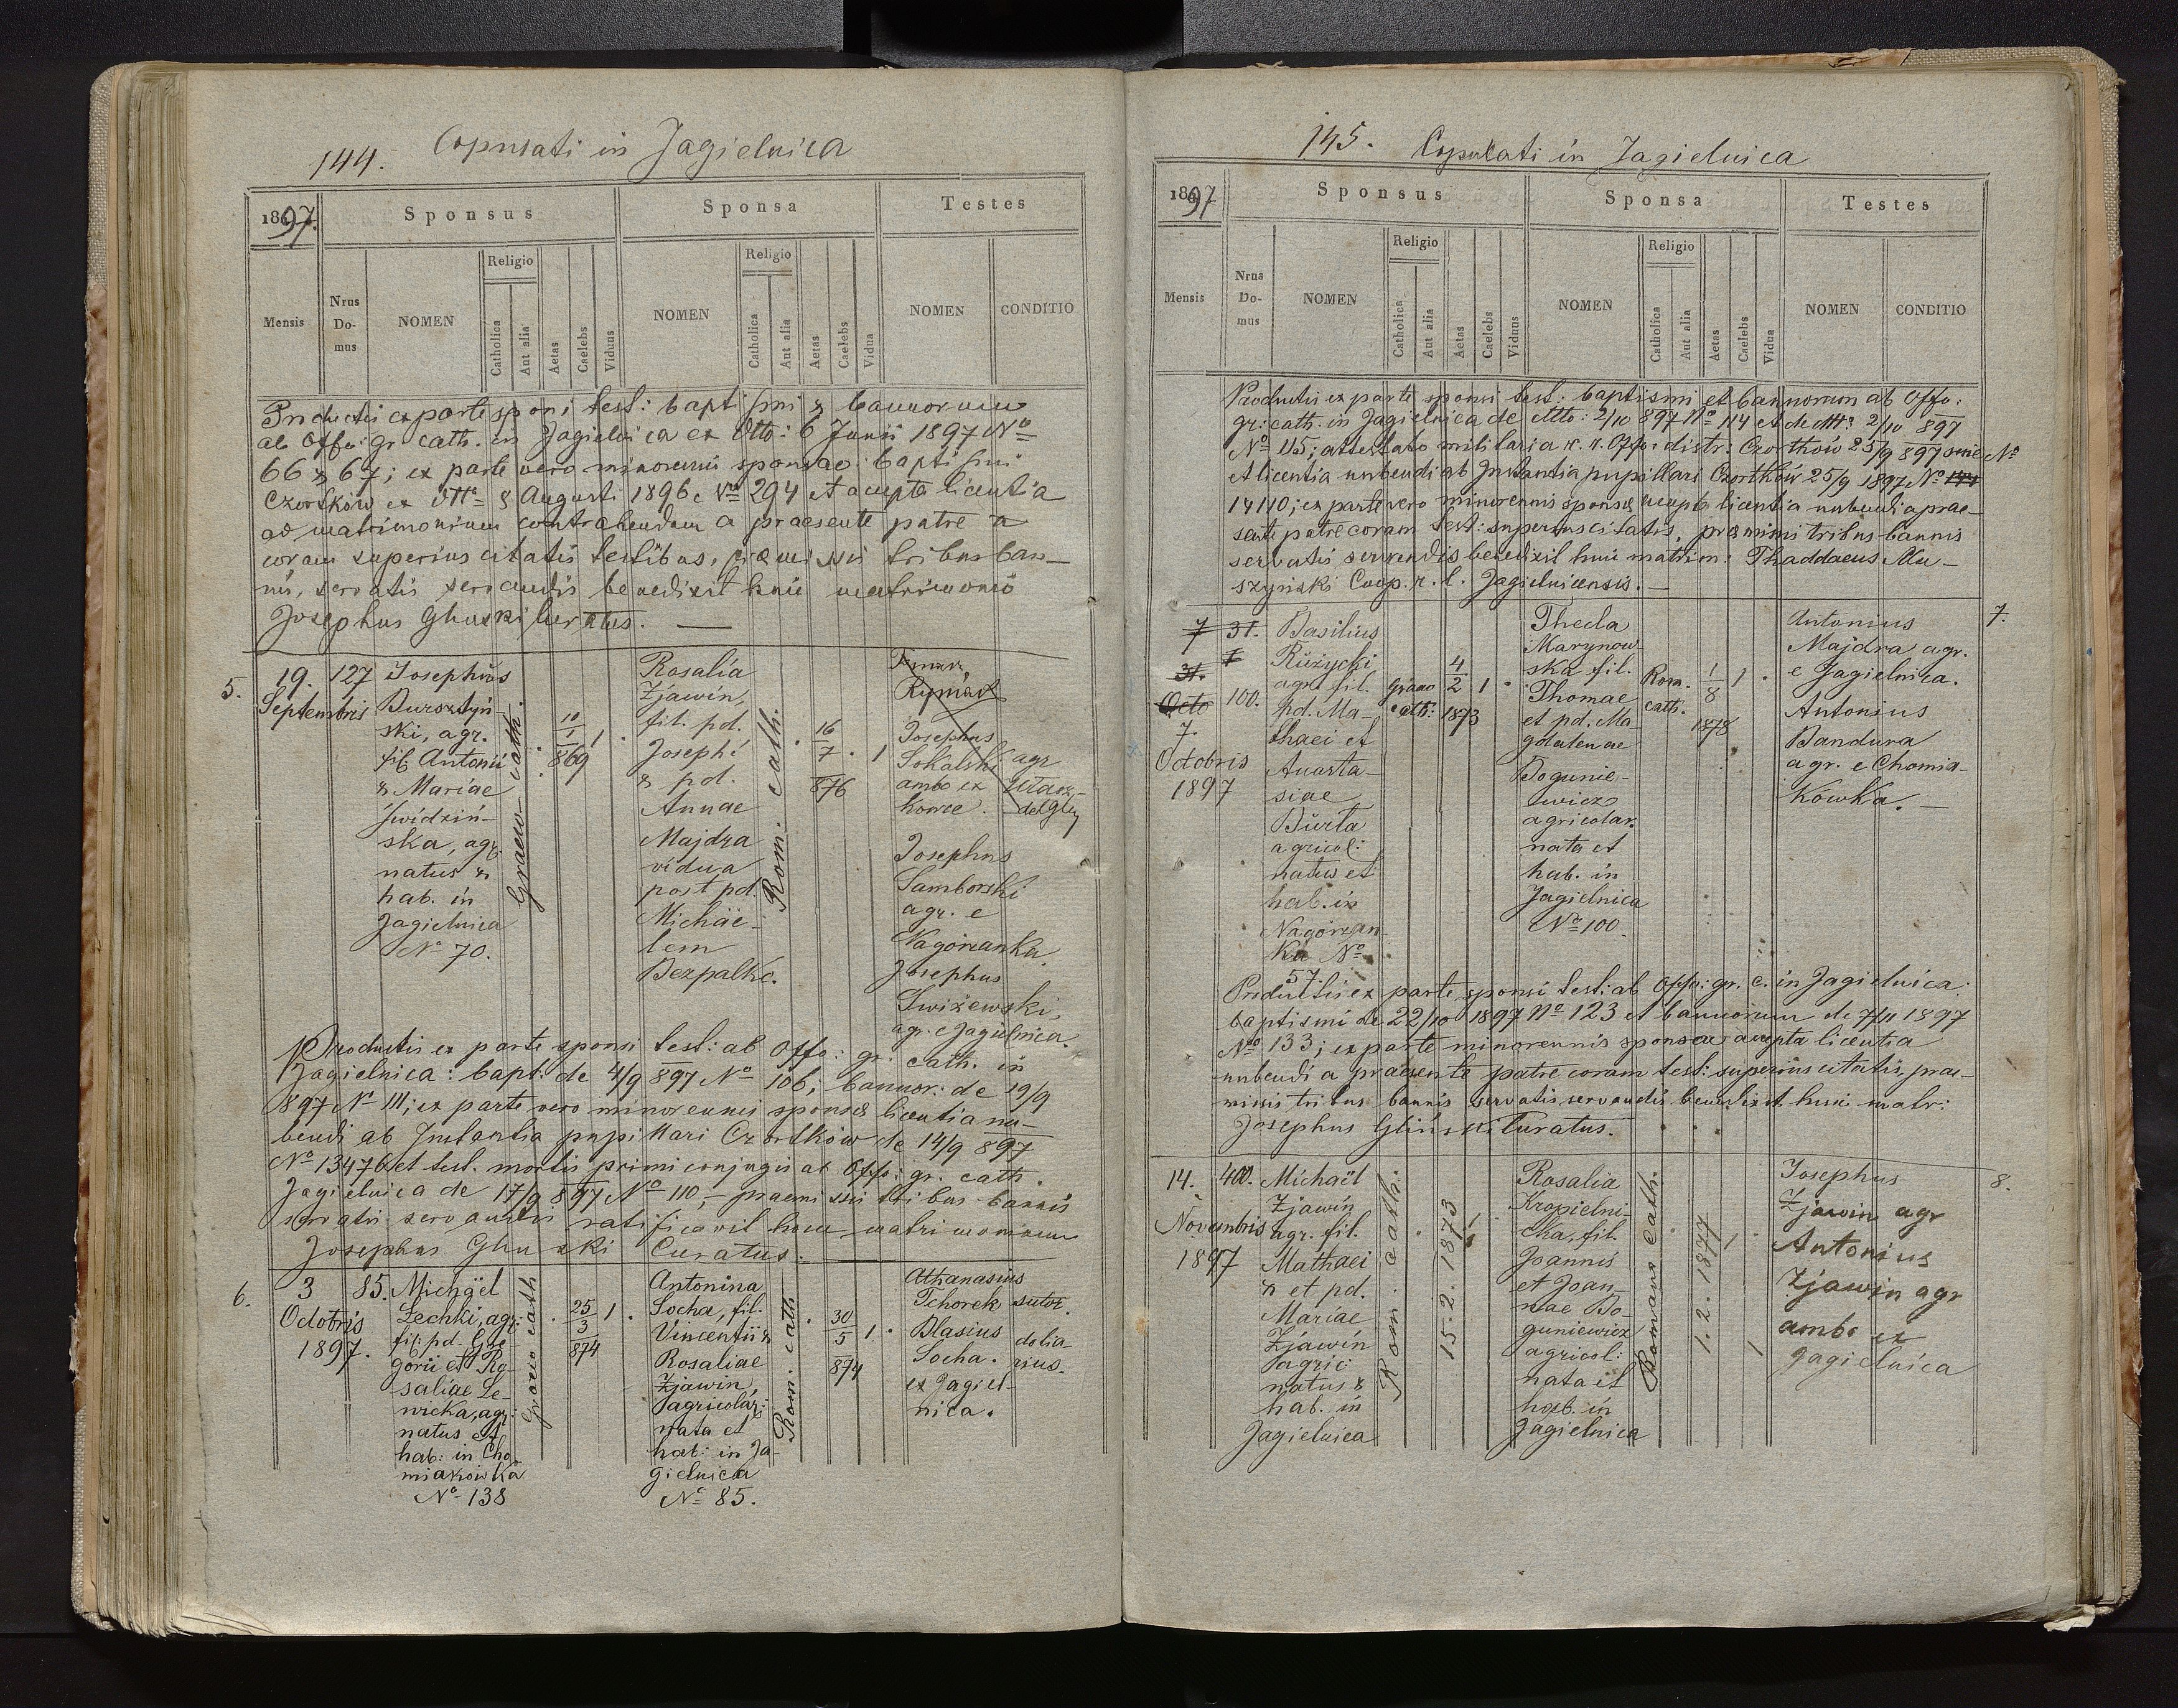 144. Copulati in Jagielnica
1897. Sponsus Sponsa Testes
Mensis Nrus Domus NOMEN Religio Catholica Aut alia Aetas Caelebs Viduus NOMEN Religio Catholica Aut alia Aetas Caelebs Vidua NOMEN CONDITIO
Productis ex parte sponsi test: baptismi & bannorum
ab Offo: gr. cath. in Jagielnica ex dtto: 6 Junii 1897 No
66 & 67; ex parte vero minorennis sponsae: baptismi
Czortków ex dtto 8 Augusti 1896 Nro 294 et accepta licentia
ad matrimonium contrahendum a praesente patre
coram superius citatis testibus, praemissis tribus ban-
nis, servatis servandis benedixit huic matrimonio
Josephus Gliński Curatus.
5.
19.
Septembris
127
Josephus
Bursztyń-
ski, agr.
fil. Antonii
& Mariae
Świdziń-
ska, agr.
natus &
hab. in
Jagielnica
No 70.
Graeco cath.
10
1
869
1
Rosalia
Zjawin,
fil. pd.
Josephi
& pd.
Annae
Majdra
vidua
post pd.
Michäe-
lem
Bezpalko.
Rom. cath.
16
7
876
1
Rymarz
Josephus
Sokalski agr
ambo ex
Josephus
Samborski
agr. e
Nagórzanka
Josephus
Świżewski,
agr. e Jagielnica.
Productis ex parte sponsi test: ab Offo: gr. cath. in
Jagielnica: bapt: de 4/9 897 No 106; bannor: de 19/9
897 No 111; ex parte vero minorennis sponsae licentia nu-
bendi ab Instantia pupillari Czortków de 14/9 897
No 13476 et test. mortis primi conjugis ab Offo: gr. cath.
Jagielnica de 17/9 897 No 110, praemissis tribus bannis
servatis servandis ratificavit hoc matrimonium
Josephus Gliński Curatus.
6.
3
Octobris
1897.
85.
Michael
Lechki, agr:
fil: pd. Gre-
gorii et Ro-
saliae Le-
wicka, agr:
natus et
hab: in Cho-
miakówka
No 138
Graeco cath
25
3
874
1
Antonina
Socha, fil.
Vincentii &
Rosaliae
Zjawin,
agricolar:
nata et
hab: in Ja-
gielnica
No 85.
Rom. cath
30
5
874
1
Athanasius
Tchorek sutor.
Blasius dolia-
Socha. rius.
ex Jagiel-
nica.
145. Copulati in Jagielnica
1897 Sponsus Sponsa Testes
Mensis Nrus Domus NOMEN Religio Catholica Aut alia Aetas Caelebs Viduus NOMEN Religio Catholica Aut alia Aetas Caelebs Vidua NOMEN CONDITIO
Productis ex parte sponsi test: baptismi et bannorum ab Offo:
gr: cath. in Jagielnica de dtto: 2/10 897 No 114 et de dtto: 2/10 897
No 115; attestato militari a Offo: distr: Czortków 25/9 897 sine No
et licentia nubendi ab Instantia pupillari Czortków 25/9 1897 No
14110; ex parte vero minorennis sponsae accepta licentia nubendi a prae-
sente patre coram test: superius citatis, praemissis tribus bannis
servatis servandis benedixit huic matrim: Thaddaeus Mu-
szyński Coop. r. l. Jagielnicensis.
7 31.
31. 1
Octo 100.
7.
Octobris
1897
Basilius
Różycki
agr. fil.
pd. Ma-
thaei et
Anasta-
siae
Burta
agricol:
natus et
hab. in
Nagórzan-
ka No
57.
Graeco
cath:
4
2
1873
1
Thecla
Marynow-
ska fil.
Thomae
et pd. Ma-
gdalenae
Bogunie-
wicz
agricolar.
nata et
hab. in
Jagielnica
No 100.
Rom.
cath.
1
8
1878
1
Antonius
Majdra agr.
e Jagielnica.
Antonius
Bandura
agr. e Chomia-
kówka.
7.
Productis ex parte sponsi test: ab Offo: gr. c. in Jagielnica:
baptismi de 22/10 1897 No 123 et bannorum de 7/11 1897
No 133; ex parte minorennis sponsae accepta licentia
nubendi a praesente patre coram test: superius citatis, prae-
missis tribus bannis servatis servandis benedixit huic matr:
Josephus Gliński Curatus.
14.
Novembris
1897
400.
Michaël
Zjawin
agr. fil.
Mathaei
& et pd.
Mariae
Zjawin
agric:
natus &
hab. in
Jagielnica
Rom. cath.
15. 2. 1873
1
Rosalia
Kropielni-
cka, fil.
Joannis
et Joan-
nae Bo-
guniewicz
agricol:
nata et
hab. in
Jagielnica
Romano cath.
1. 2. 1877
1
Josephus
Zjawin agr
Antonius
Zjawin agr
ambo ex
Jagielnica
8.